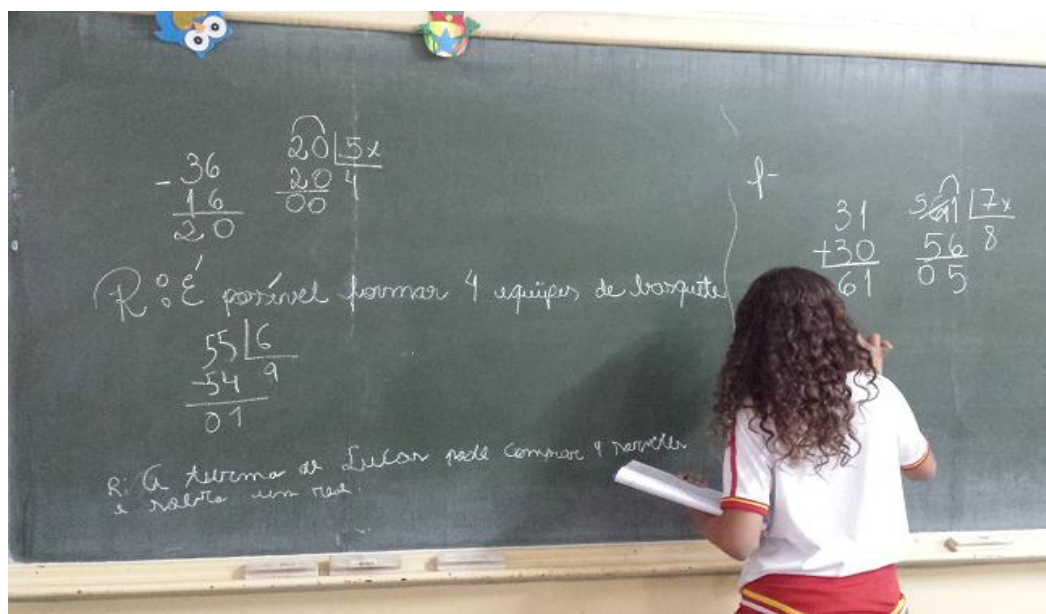 - 36
16
20
20 5x
20 4
00
R: É possível formar 4 equipes de basquete
55 6
-54 9
01
R: A turma de Lucas pode comprar 9 sorvetes
e sobra um real.
f-
31
+30
61
5 61 7x
56 8
05